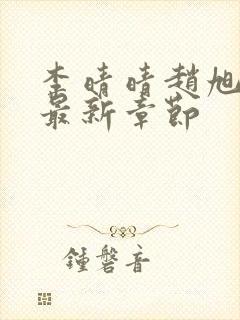 李晴晴趙旭
最新章節
鍾磬音